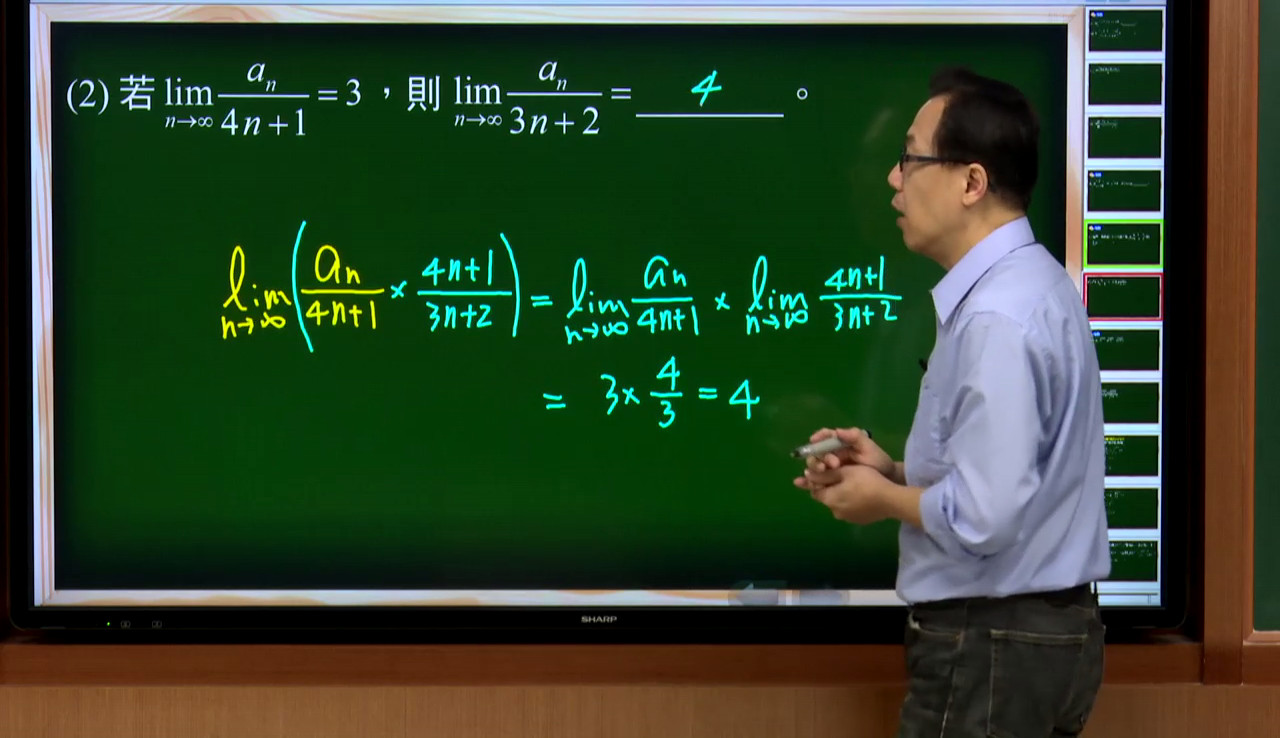 (2) 若 lim n→∞ aₙ/(4n+1) = 3，則 lim n→∞ aₙ/(3n+2) = 4 。
lim n→∞ (aₙ/(4n+1) × (4n+1)/(3n+2)) = lim n→∞ aₙ/(4n+1) × lim n→∞ (4n+1)/(3n+2)
= 3 × 4/3 = 4
SHARP